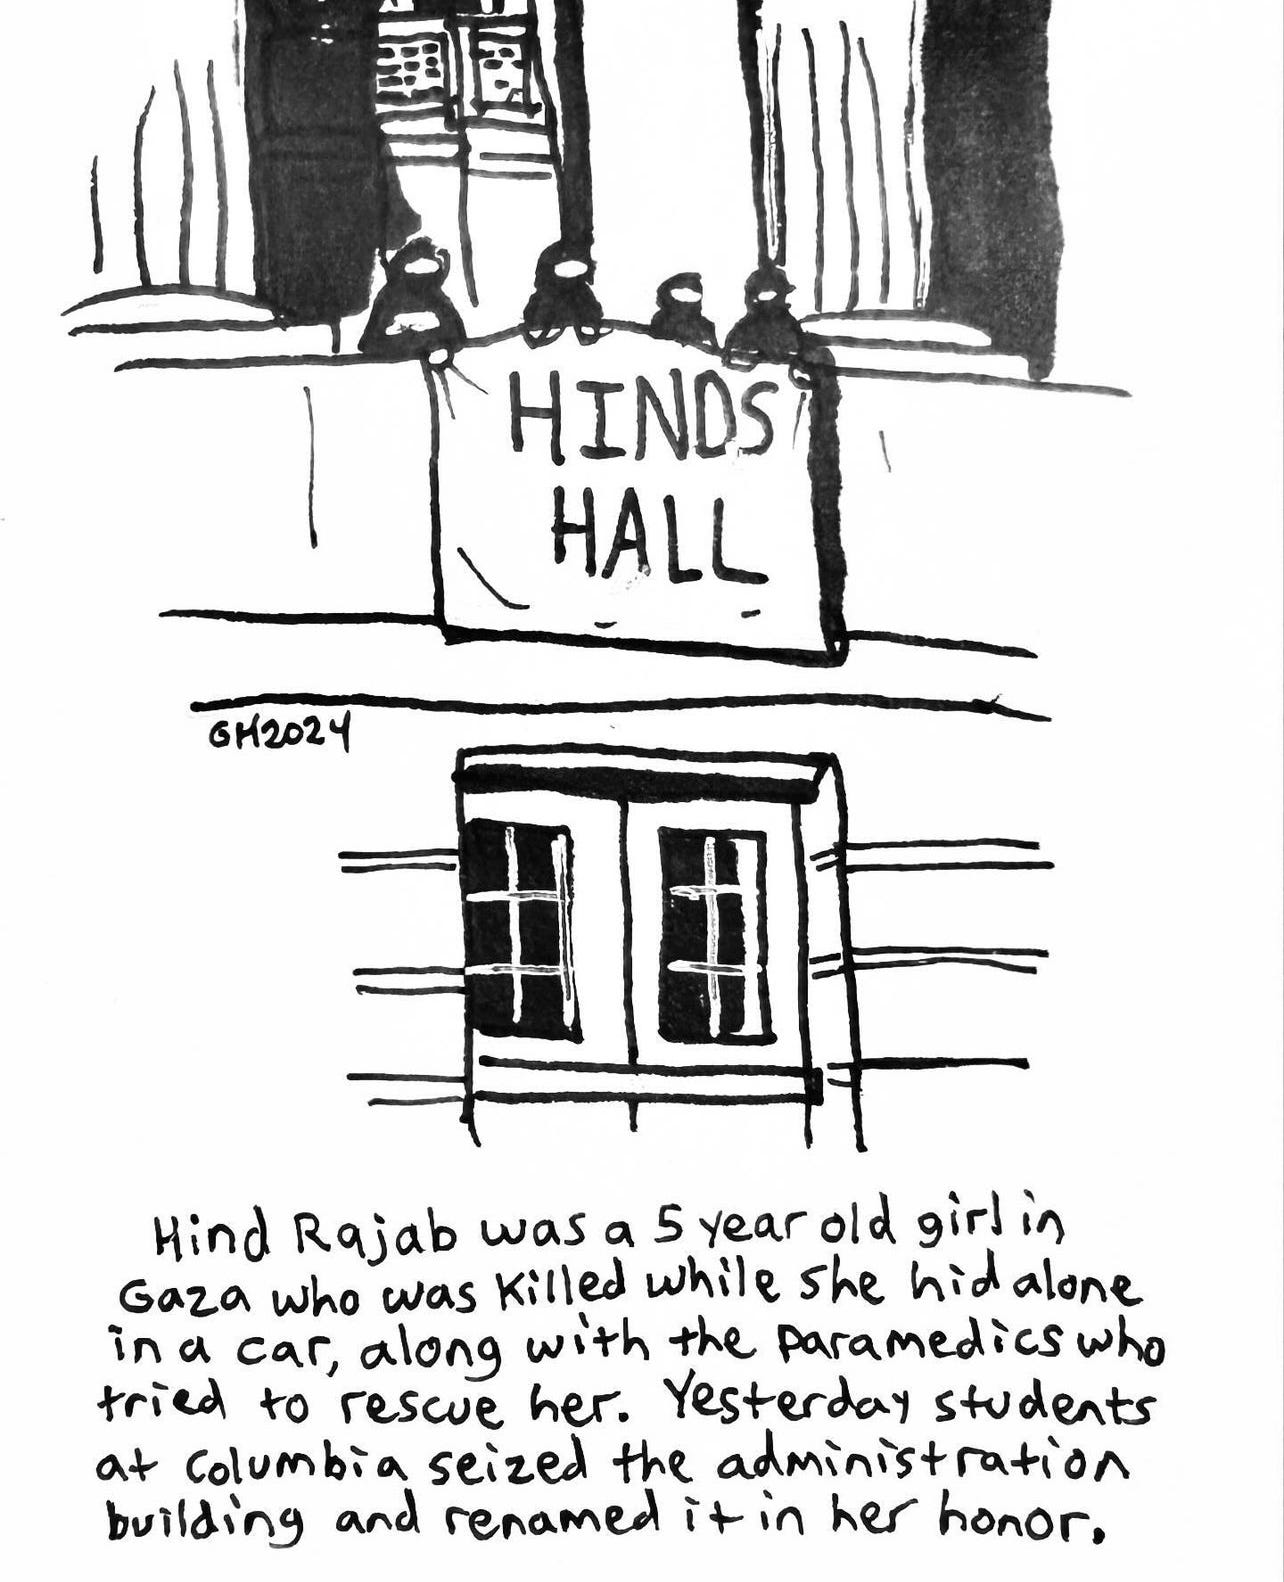 HINDS
HALL
GH2024
Hind Rajab was a 5 year old girl in
Gaza who was killed while she hid alone
in a car, along with the paramedics who
tried to rescue her. Yesterday students
at Columbia seized the administration
building and renamed it in her honor.